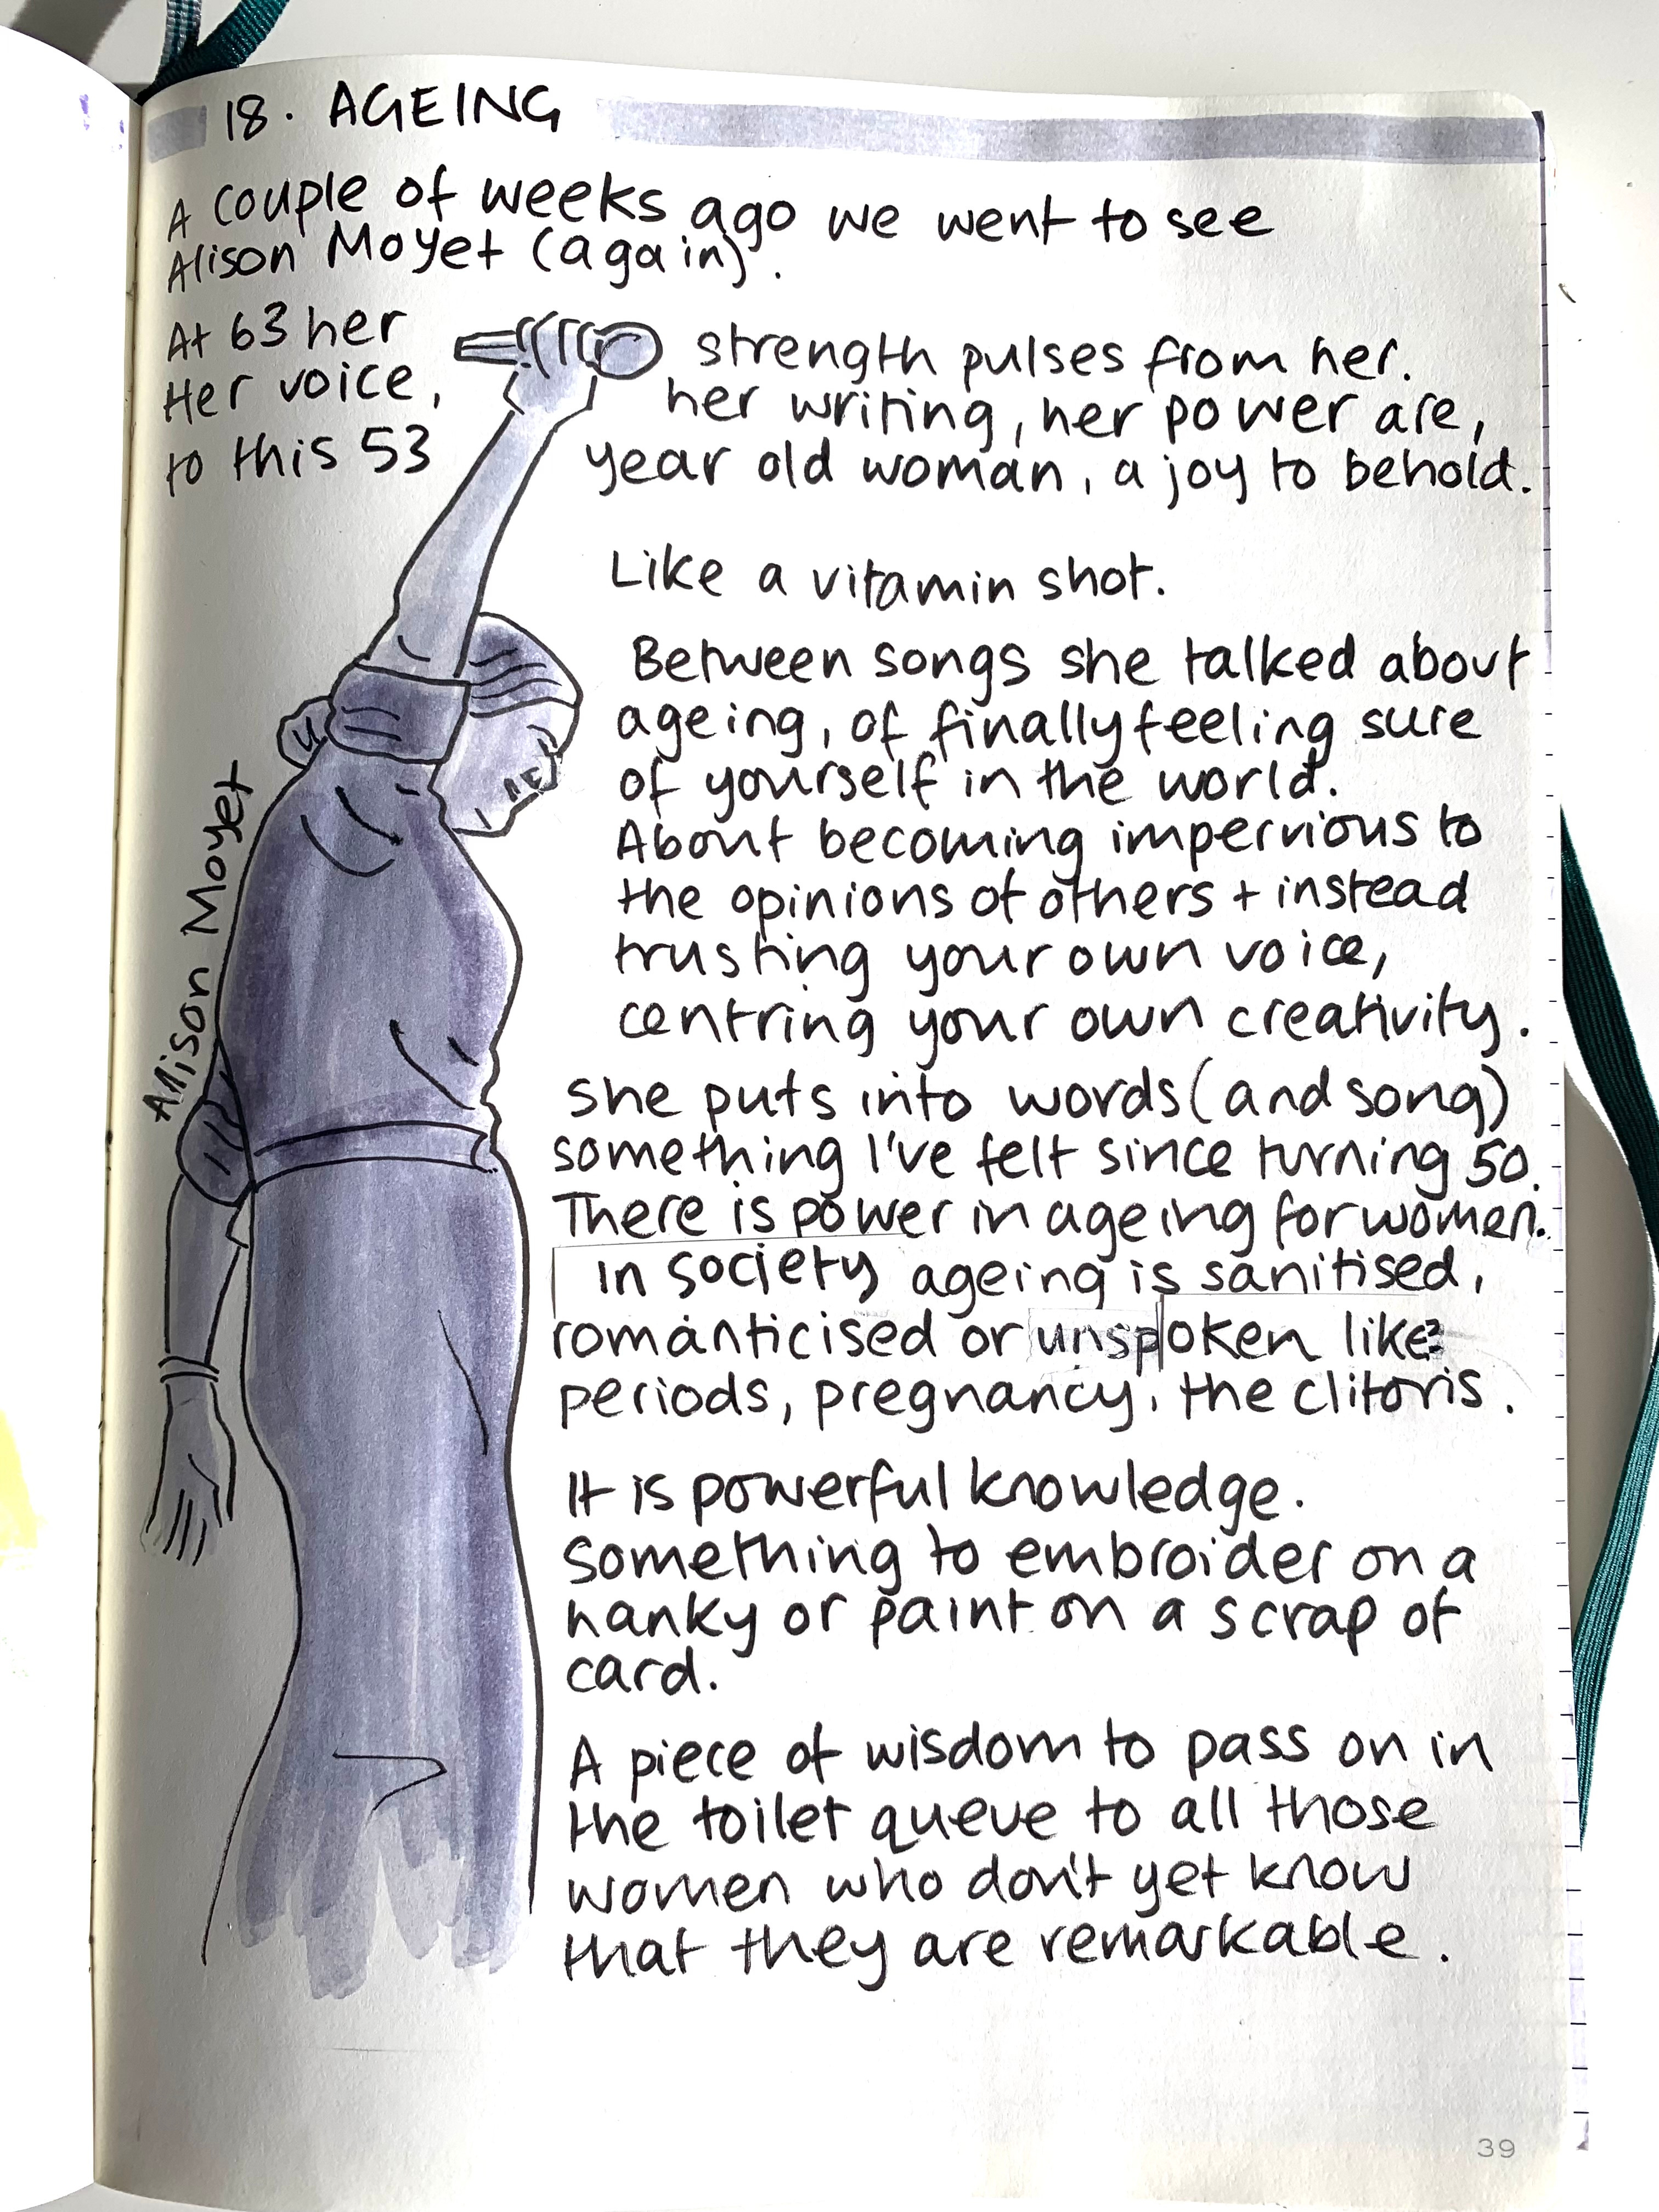 18. AGEING
A couple of weeks ago we went to see
Alison Moyet (again).
At 63 her strength pulses from her.
Her voice, her writing, her power are,
to this 53 year old woman, a joy to behold.
Like a vitamin shot.
Between songs she talked about
ageing, of finally feeling sure
of yourself in the world.
About becoming impervious to
the opinions of others + instead
trusting your own voice,
centring your own creativity.
She puts into words (and song)
something I've felt since turning 50.
There is power in ageing for women.
In society ageing is sanitised,
romanticised or unspoken like:
periods, pregnancy, the clitoris.
It is powerful knowledge.
Something to embroider on a
hanky or paint on a scrap of
card.
A piece of wisdom to pass on in
the toilet queue to all those
women who don't yet know
that they are remarkable.
Alison Moyet
39